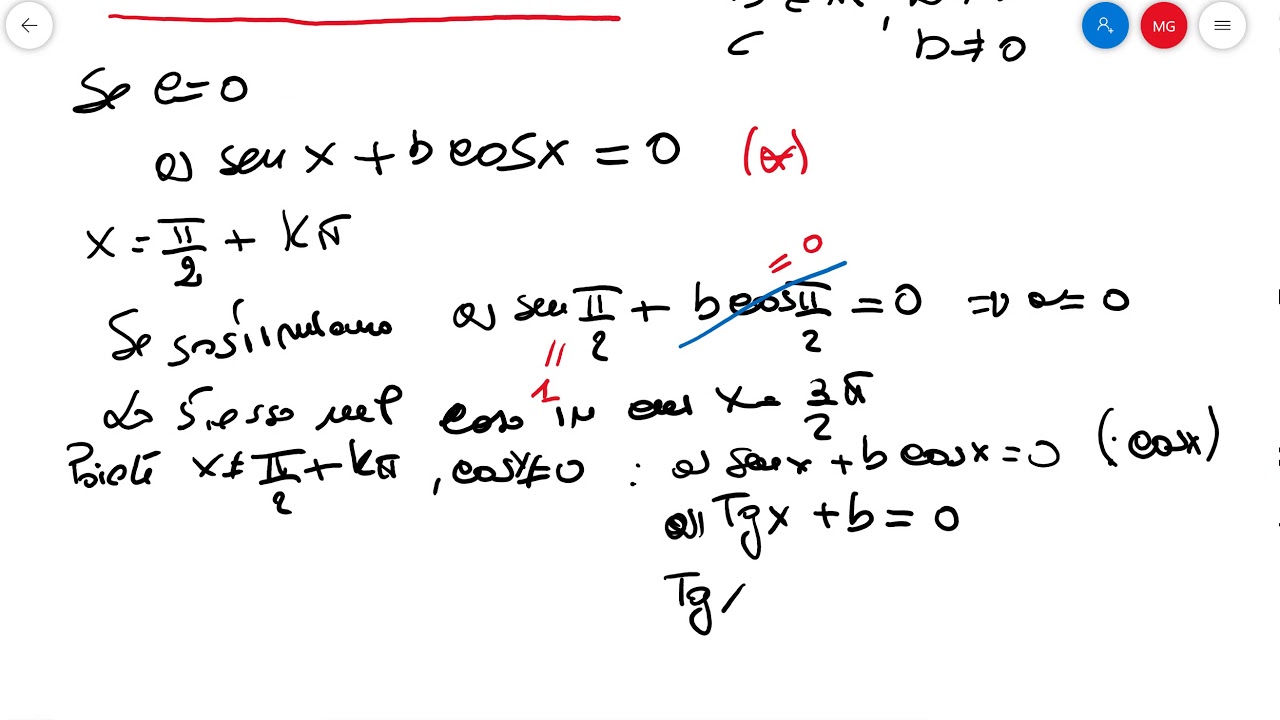 b ≠ 0
MG
Se c=0
a sen x + b cos x = 0 (*)
x = π/2 + kπ
= 0
Se sostituiamo a sen π/2 + b cos π/2 = 0 => a = 0
|| 1
Lo stesso nel caso in cui x = 3/2 π
Poiché x ≠ π/2 + kπ, cosx≠0 : a senx + b cosx = 0 (: cosx)
a Tgx + b = 0
Tg